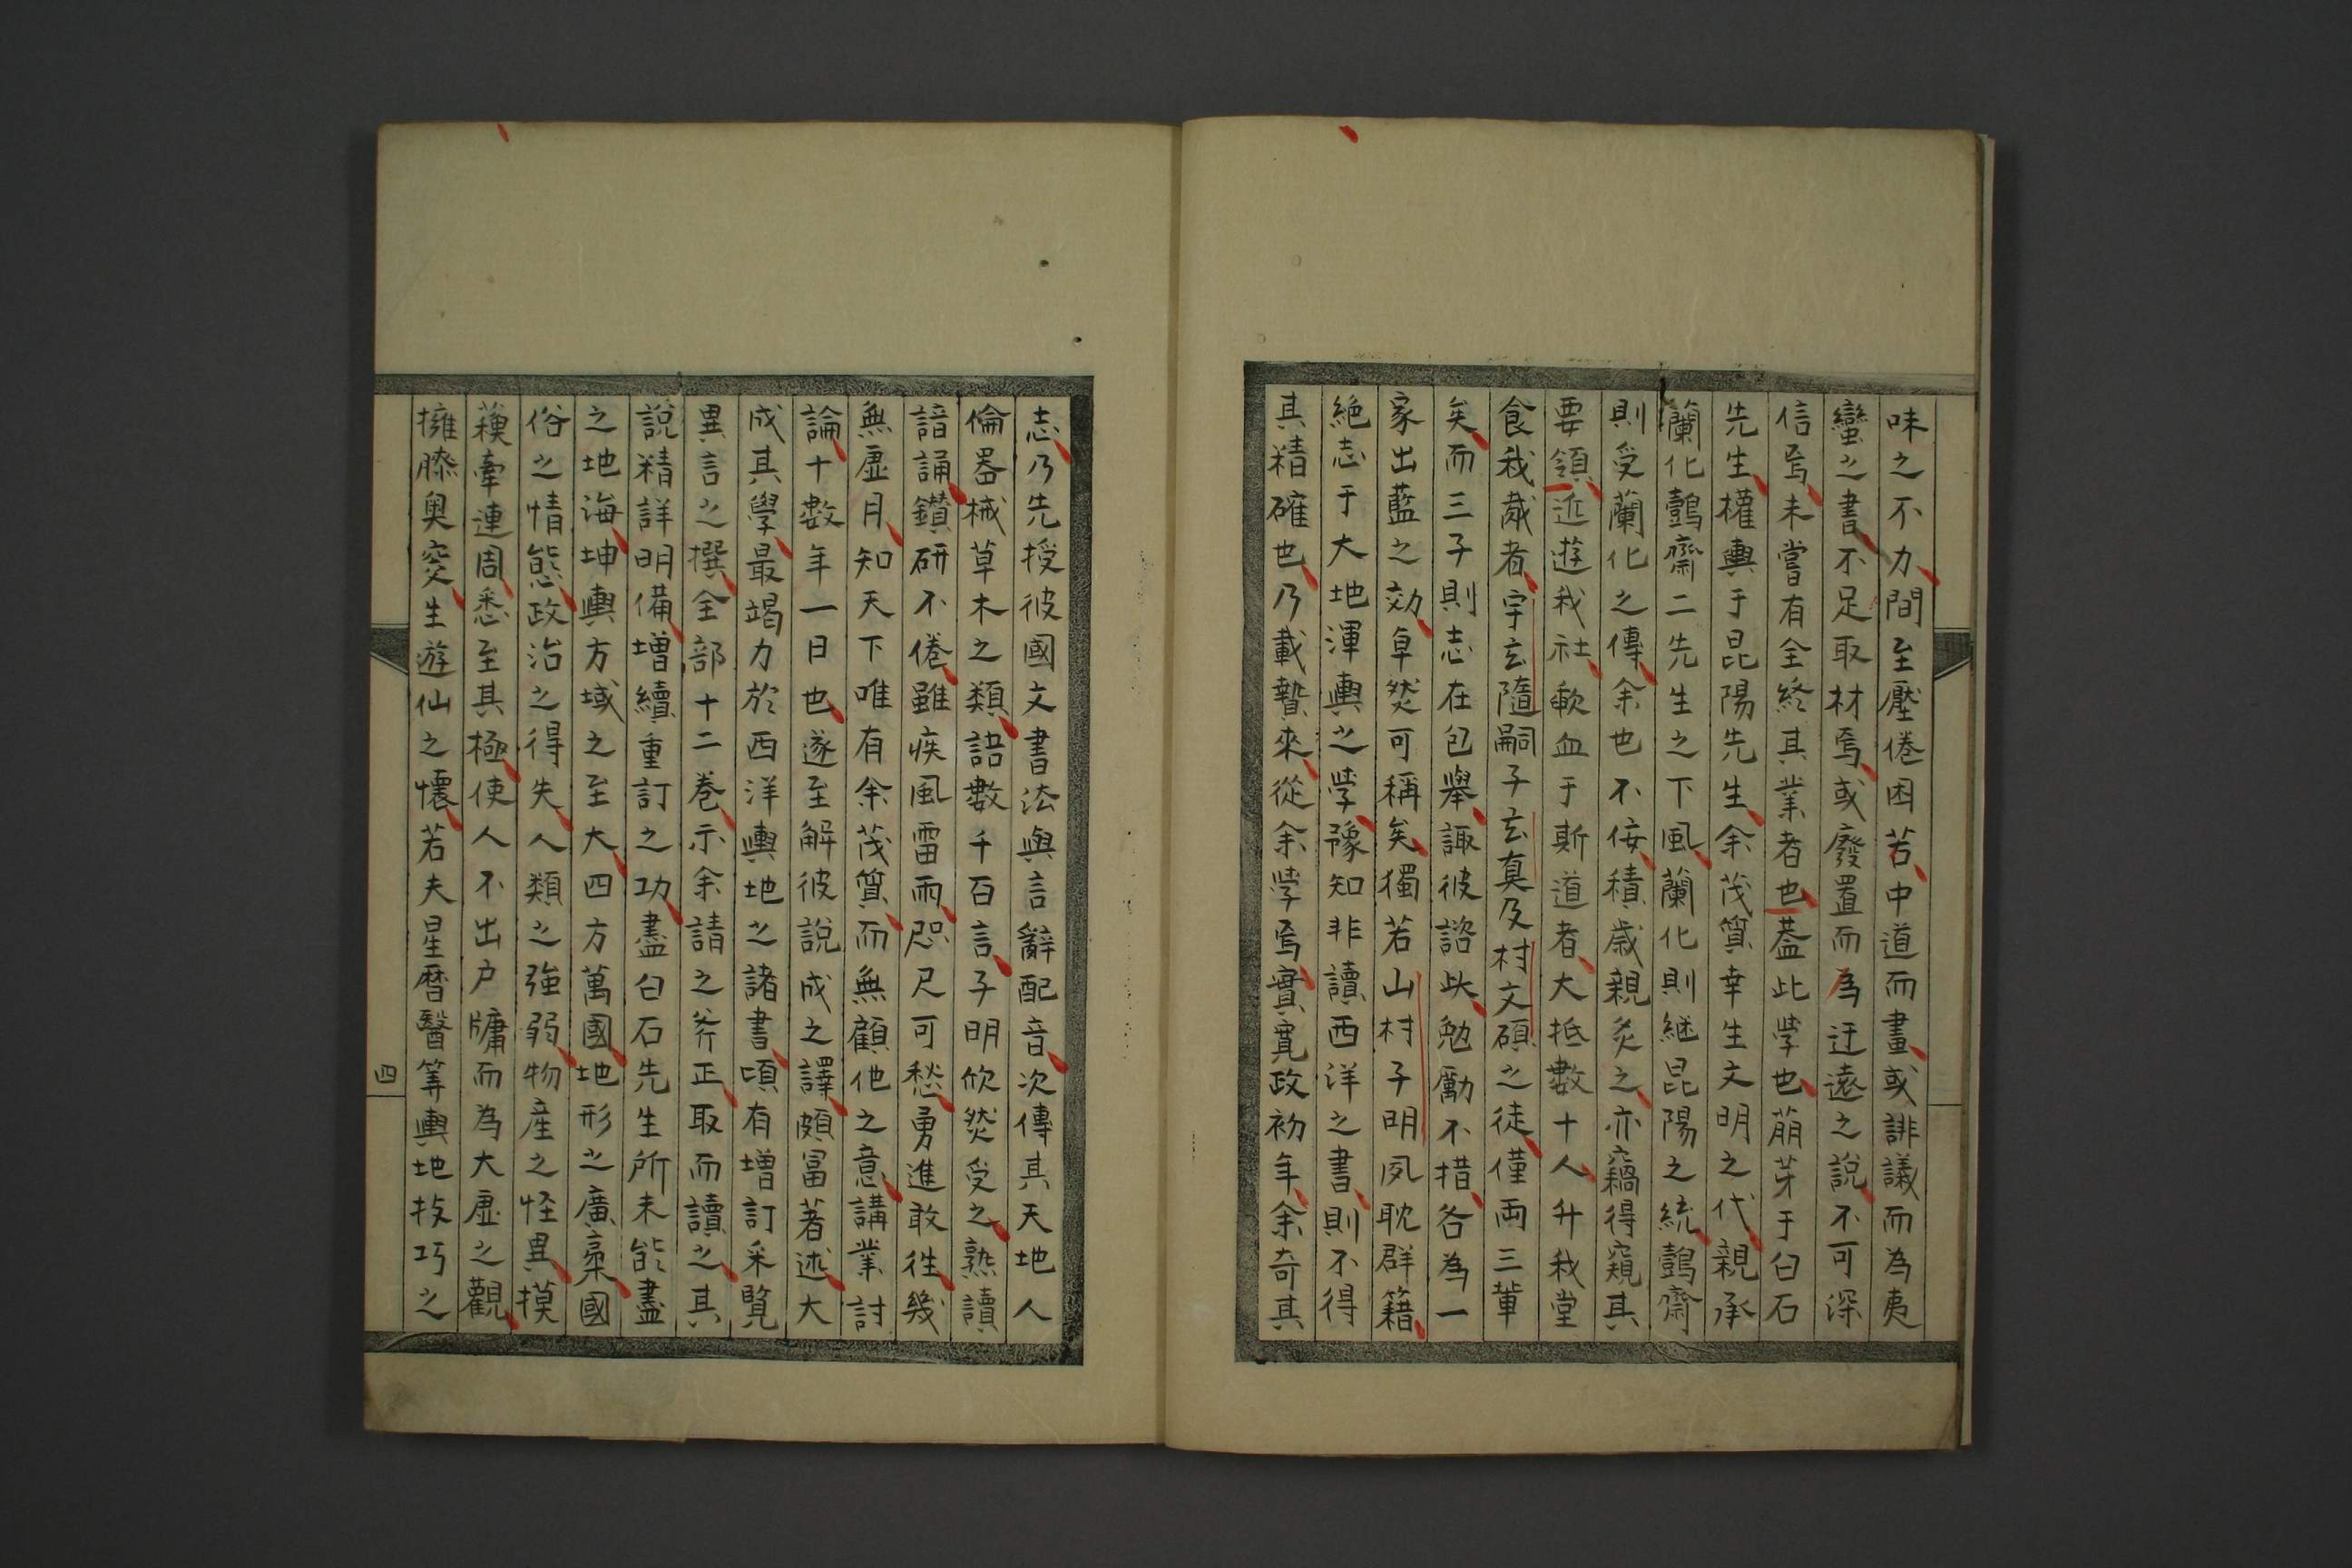 味之不力間至壓倦困苦中道而畫或誹議而為夷
蠻之書不足取材焉或廢置而為迂遠之說不可深
信焉未嘗有全終其業者也蓋此学也萠芽于白石
先生權輿于昆陽先生余茂質幸生文明之代親承
蘭化鷧齋二先生之下風蘭化則継昆陽之統鷧齋
則受蘭化之傳余也不侫積歳親炙之亦竊得窺其
要領近遊我社歃血于斯道者大抵數十人升我堂
食我胾者宇玄隨嗣子玄真及村文碩之徒僅両三軰
矣而三子則志在包舉諏彼諮此勉勵不措各為一
家出藍之効卓然可稱矣獨若山村子明夙耽群籍
絶志于大地渾輿之学豫知非讀西洋之書則不得
其精確也乃載贄來從余学焉實寛政初年余奇其
志乃先授彼國文書法與言辭配音次傳其天地人
倫器械草木之類語數千百言子明欣然受之熟讀
諳誦鑚研不倦雖疾風雷雨咫尺可愁勇進敢徃幾
無虚月知天下唯有余茂質而無顧他之意講業討
論十數年一日也遂至解彼說成之譯頗冨著述大
成其學最竭力於西洋輿地之諸書頃有增訂采覧
異言之撰全部十二巻示余請之斧正取而讀之其
說精詳明備增續重訂之功盡白石先生所未能盡
之地海坤輿方域之至大四方萬國地形之廣槖國
俗之情態政治之得失人類之強弱物産之怪異摸
䕶牽連周悉至其極使人不出户牗而為大虚之觀
擁膝奥窔生遊仙之懐若夫星暦醫筭輿地技巧之
四